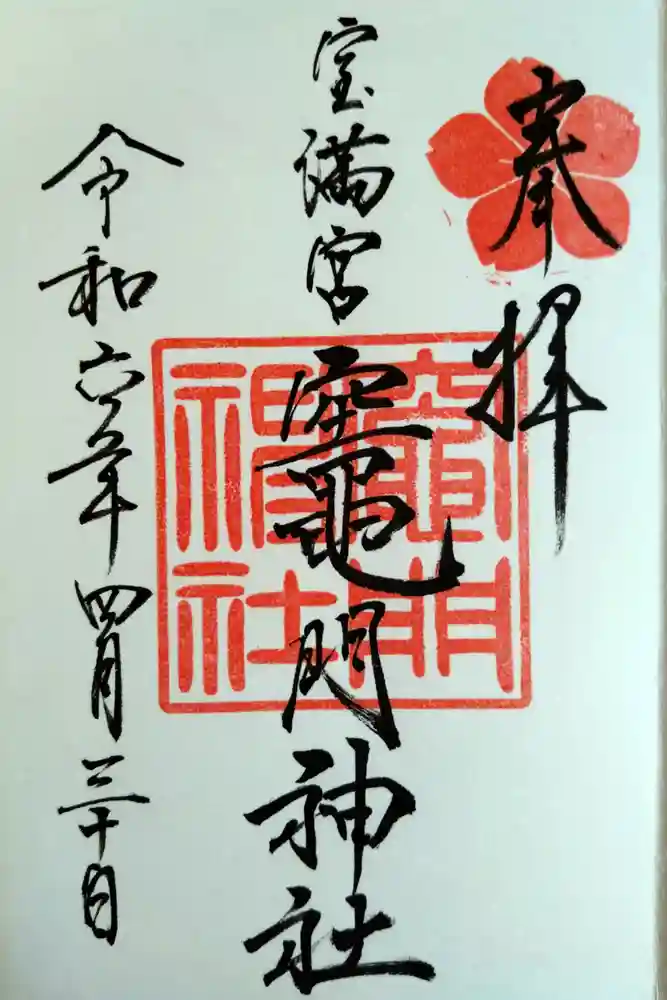 奉拝
宝満宮
竈門神社
竈門神社
令和六年四月三十日